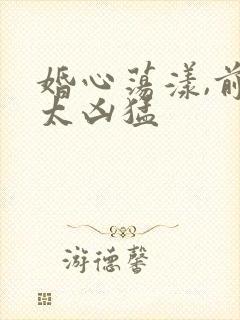 婚心荡漾,前
太凶猛
游德馨